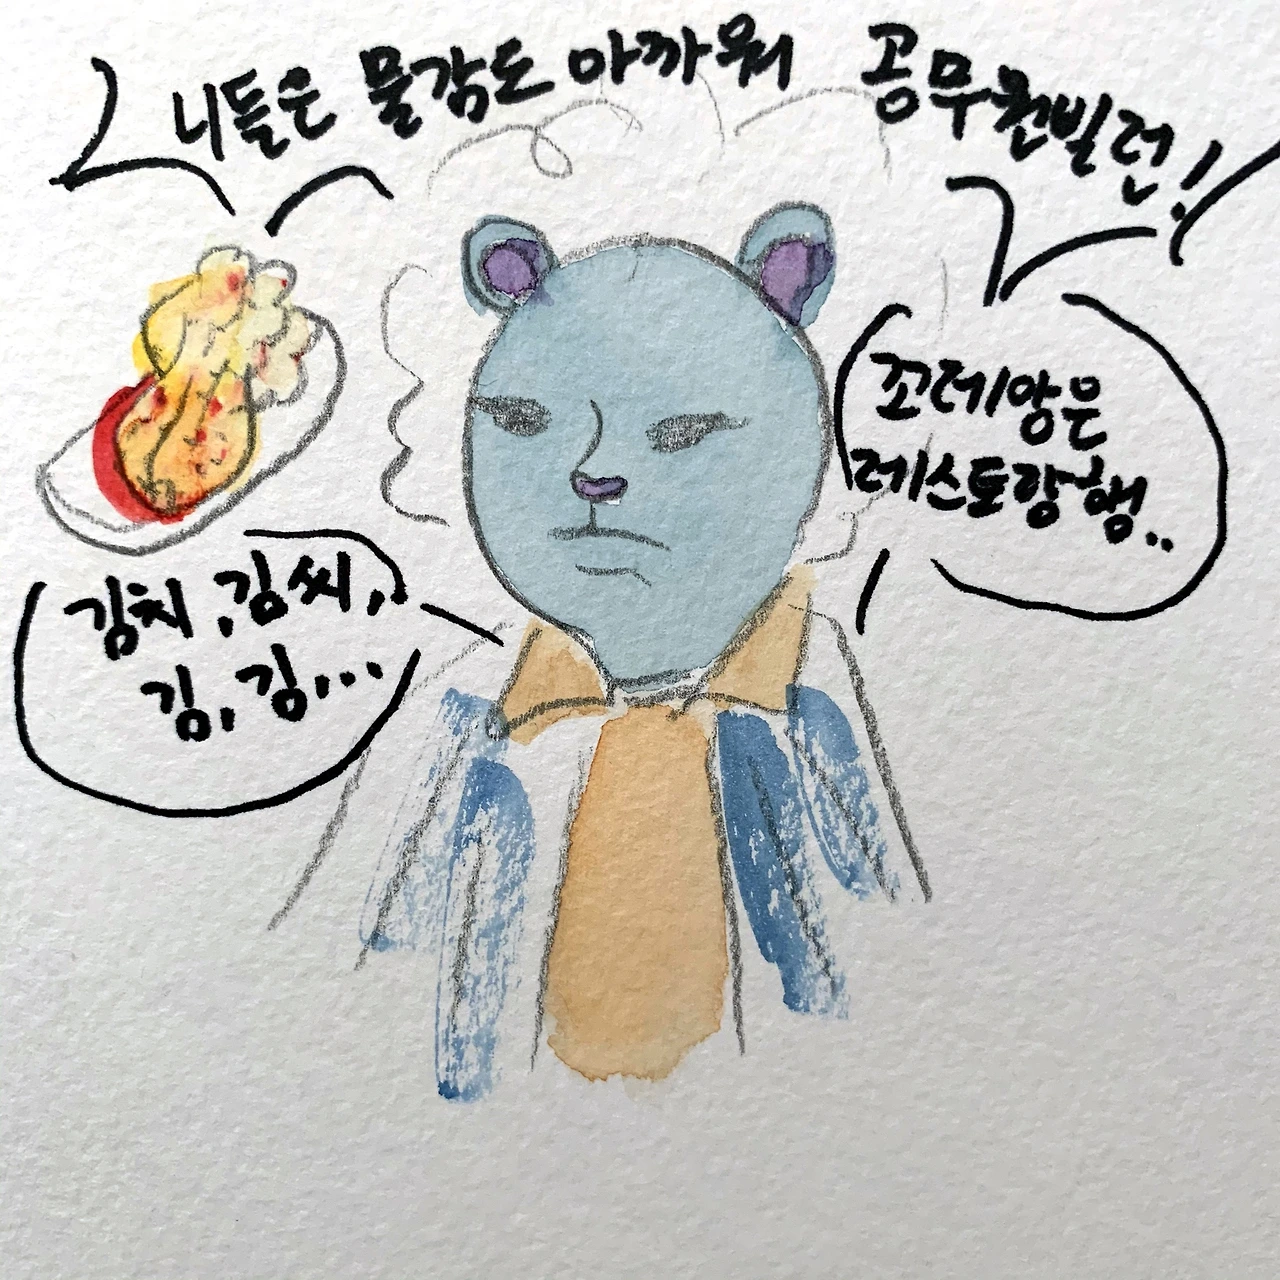 니들은 물감도 아까워 공무원빌런!
꼬레앙은
레스토랑행..
김치, 김씨,
김, 김,...